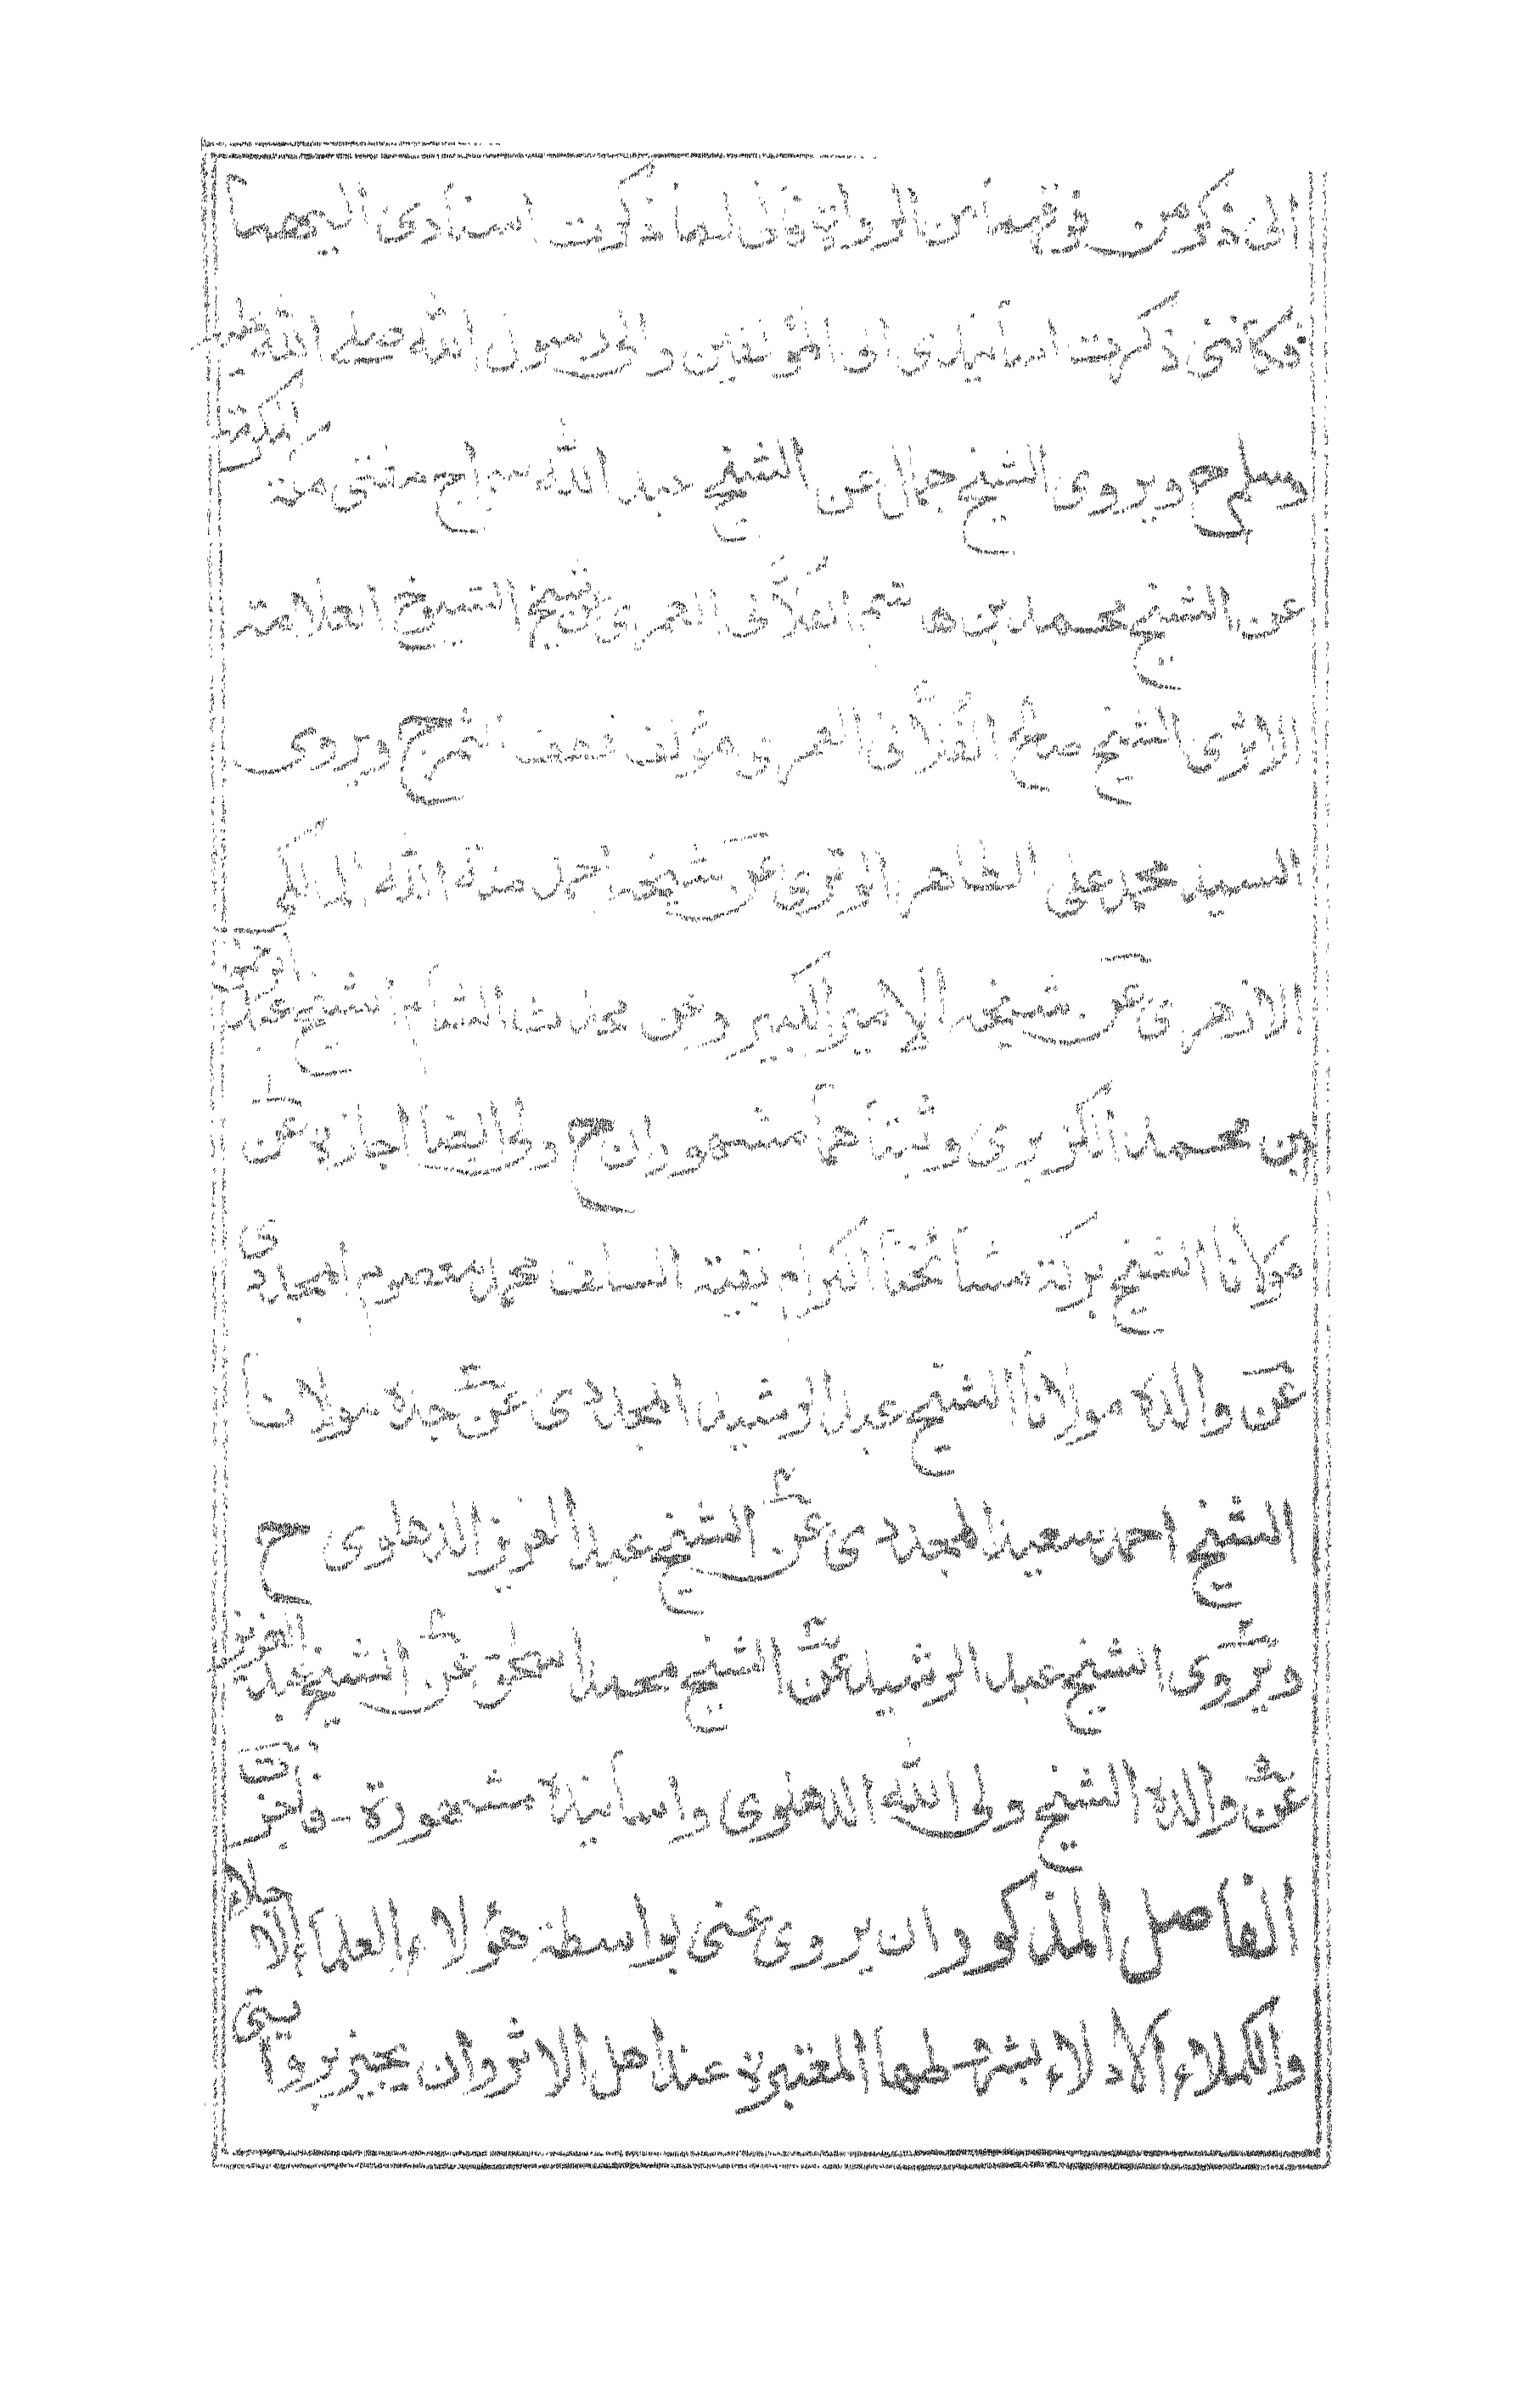 الى ذكر من فوقهما من الرواة فانى لما ذكرت اسنادى اليهما
فكاننى ذكرت اسانيدى الى المؤلفين والى رسول الله صلى الله عليه
وسلم ح ويروى الشيخ جمال عن الشيخ عبد الله سراج مفتى مكة المكرمة
عن الشيخ محمد بن هاشم الفلانى العمرى عن شيخ الشيوخ العلامة
الاثرى الشيخ صالح الفلانى العمرى مؤلف قطف الثمر ح ويروى
السيد محمد على الظاهر الوترى عن شيخه احمد منة الله المالكى
الازهرى عن شيخه الامير الكبير وعن محدث الشام الشيخ عبد الرحمن
بن محمد الكزبرى وثبتاهما مشهوران ح ولى ايضا اجازة عن
مولانا الشيخ بركة مشائخنا الكرام بقية السلف محمد معصوم المجددى
عن والده مولانا الشيخ عبد الرشيد المجددى عن جده مولانا
الشيخ احمد سعيد المجددى عن الشيخ عبد العزيز الدهلوى ح
ويروى الشيخ عبد الرشيد عن الشيخ محمد اسحق عن الشيخ عبد العزيز
عن والده الشيخ ولى الله الدهلوى واسانيده مشهورة - فاجزت
الفاضل المذكور ان يروى عنى بواسطة هؤلاء العلماء الاجلاء
والكملاء الادلاء بشرطها المعتبرة عند اهل الاثر وان يجيز بروايتى